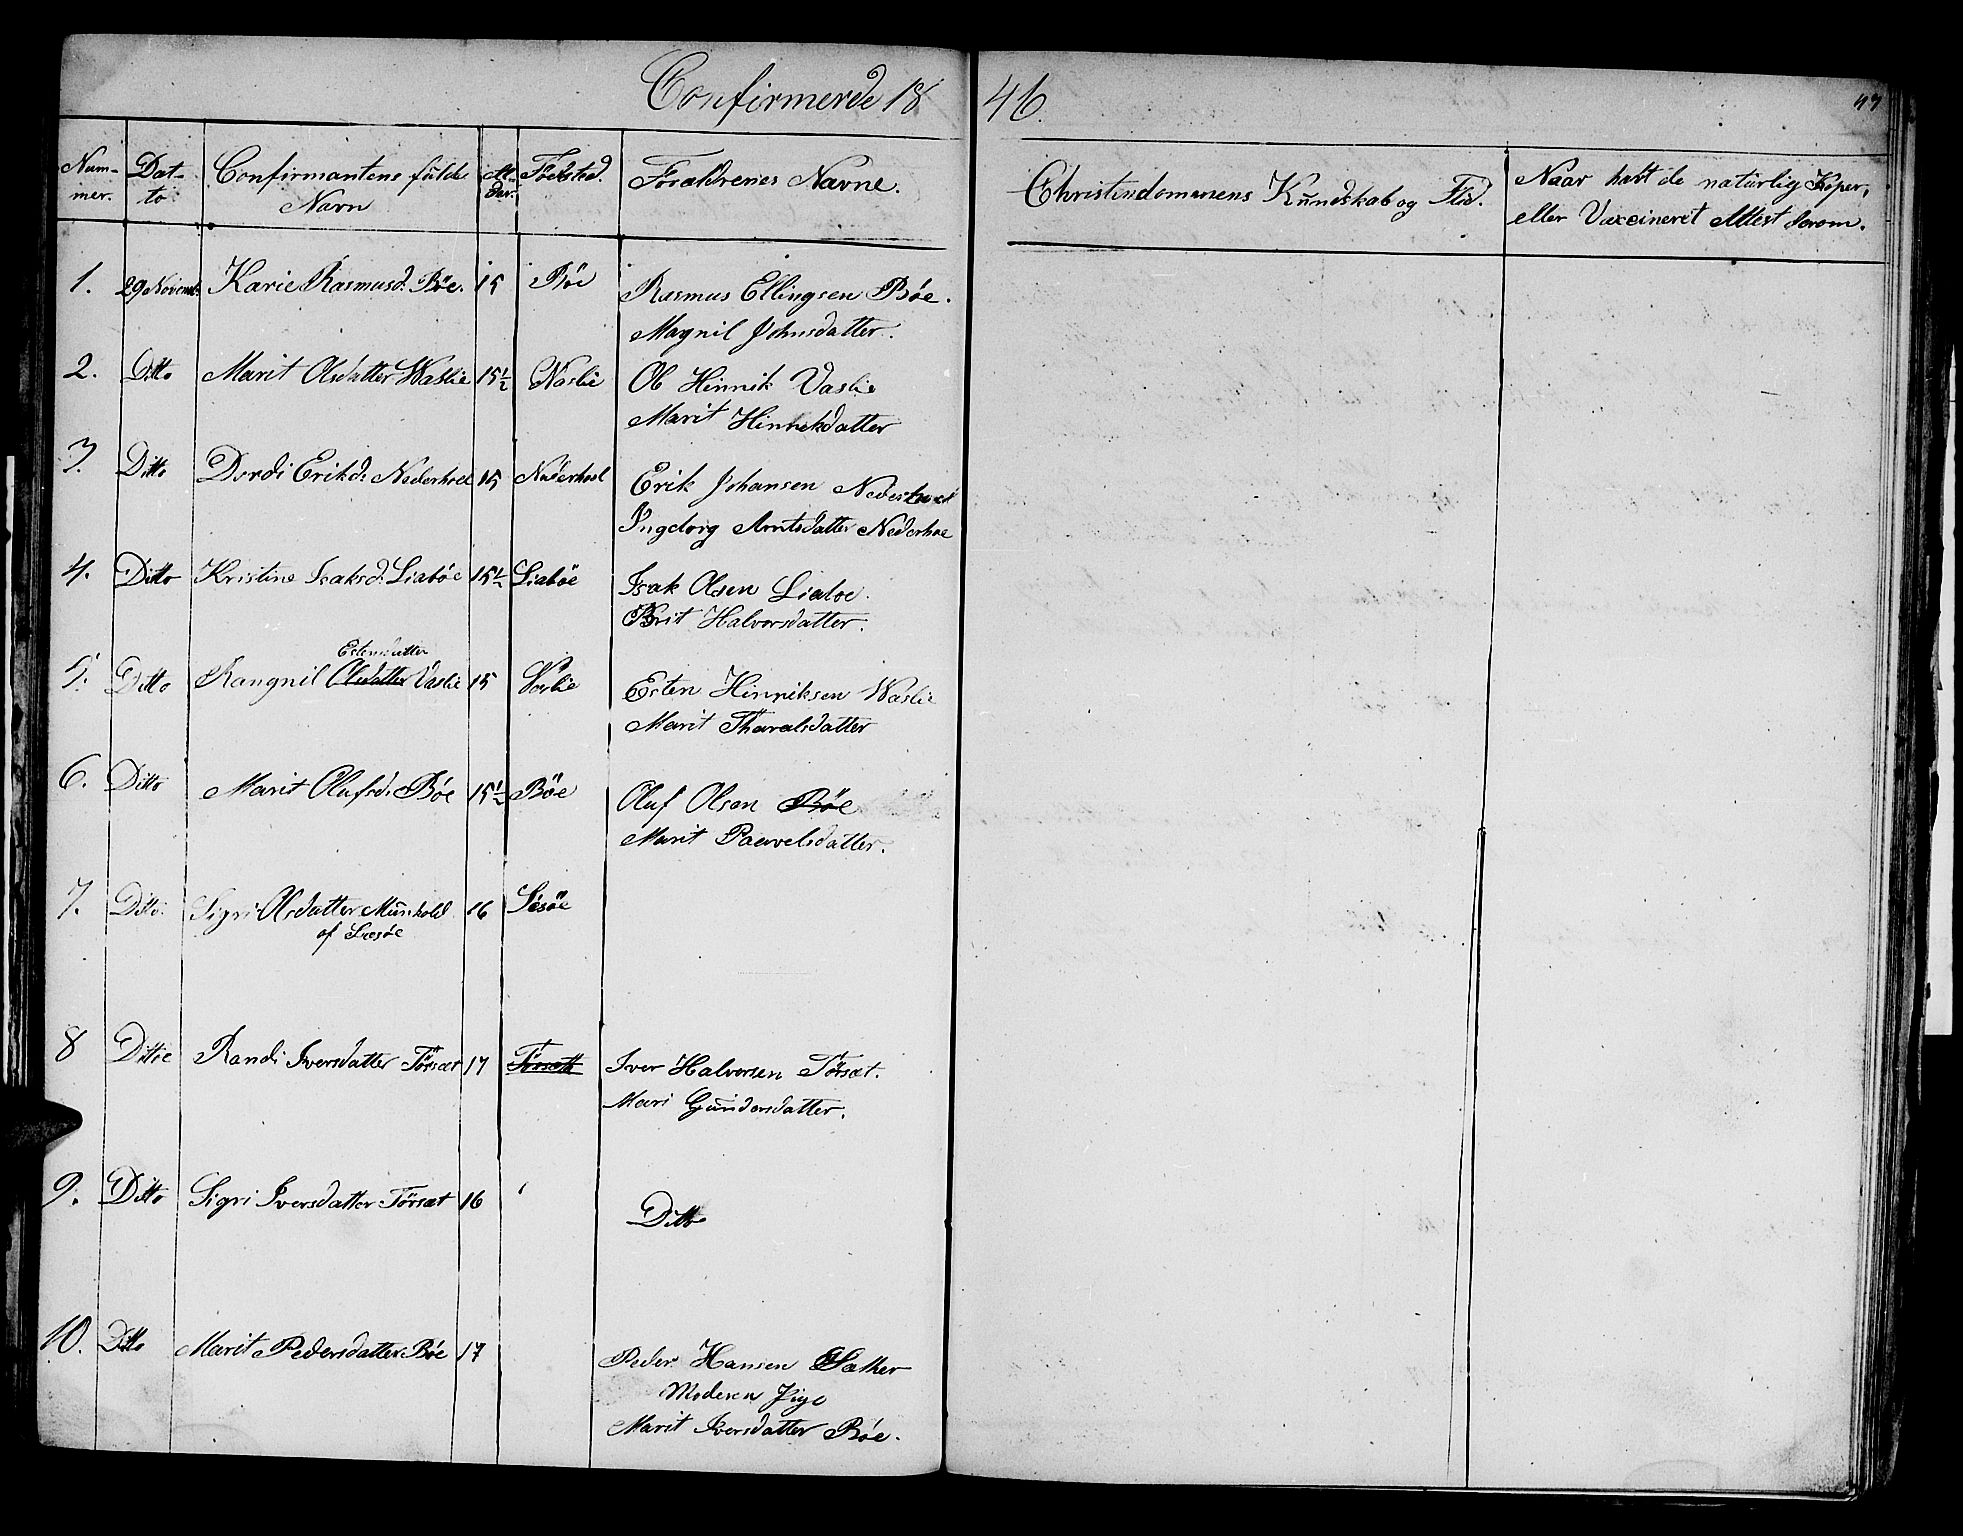 Confirmerde 1846.
47
Nummer.
Datto
Confirmantens fulde Navn
Aldar.
Fødsted.
Forældrenes Navne.
Christindomenens Kundskab og Flid.
Naar havt de naturlig Koper,
eller Vaxcineret Attest derom.
1. 29 Novemb. Karie Rasmusd. Bøe. 15 Bøe Rasmus Ellingsen Bøe.
Magnil Johnsdatter.
2. Ditto Marit Olsdatter Waslie 15½ Vaslie Ol Hinnik Vaslie
Marit Hinnikdatter
3. Ditto Dordi Erikd: Nederhoel 15 Nederhoel Erik Johansen Nederhoel
Ingeborg Arntsdatter Nederhoe
4. Ditto Kristine Isaksd. Liabøe 15½ Liabøe Isak Olsen Liaboe.
Brit Halvorsdatter.
Estensdatter
5. Ditto Rangnil Olsdatter Vaslie 15 Vaslie Esten Hinriksen Waslie
Marit Tharalsdatter
6. Ditto Marit Olufsd. Bøe 15½ Bøe Oluf Olsen Bøe
Marit Paavelsdatter.
7. Ditto. Sigri Olsdatter Munkold 16 Læsøe
of Læsøe
8 Ditto Randi Iversdatter Tørsæt 17 Torsæt Iver Halvorsen Tørsæt.
Mari Gundersdatter.
9. Ditto Sigri Iversdatter Tørsæt 16 Ditto
10. Ditto Marit Pedersdatter Bøe 17 Peder Hansen Sæther
Moderen Pige
Marit Iversdatter Bøe.